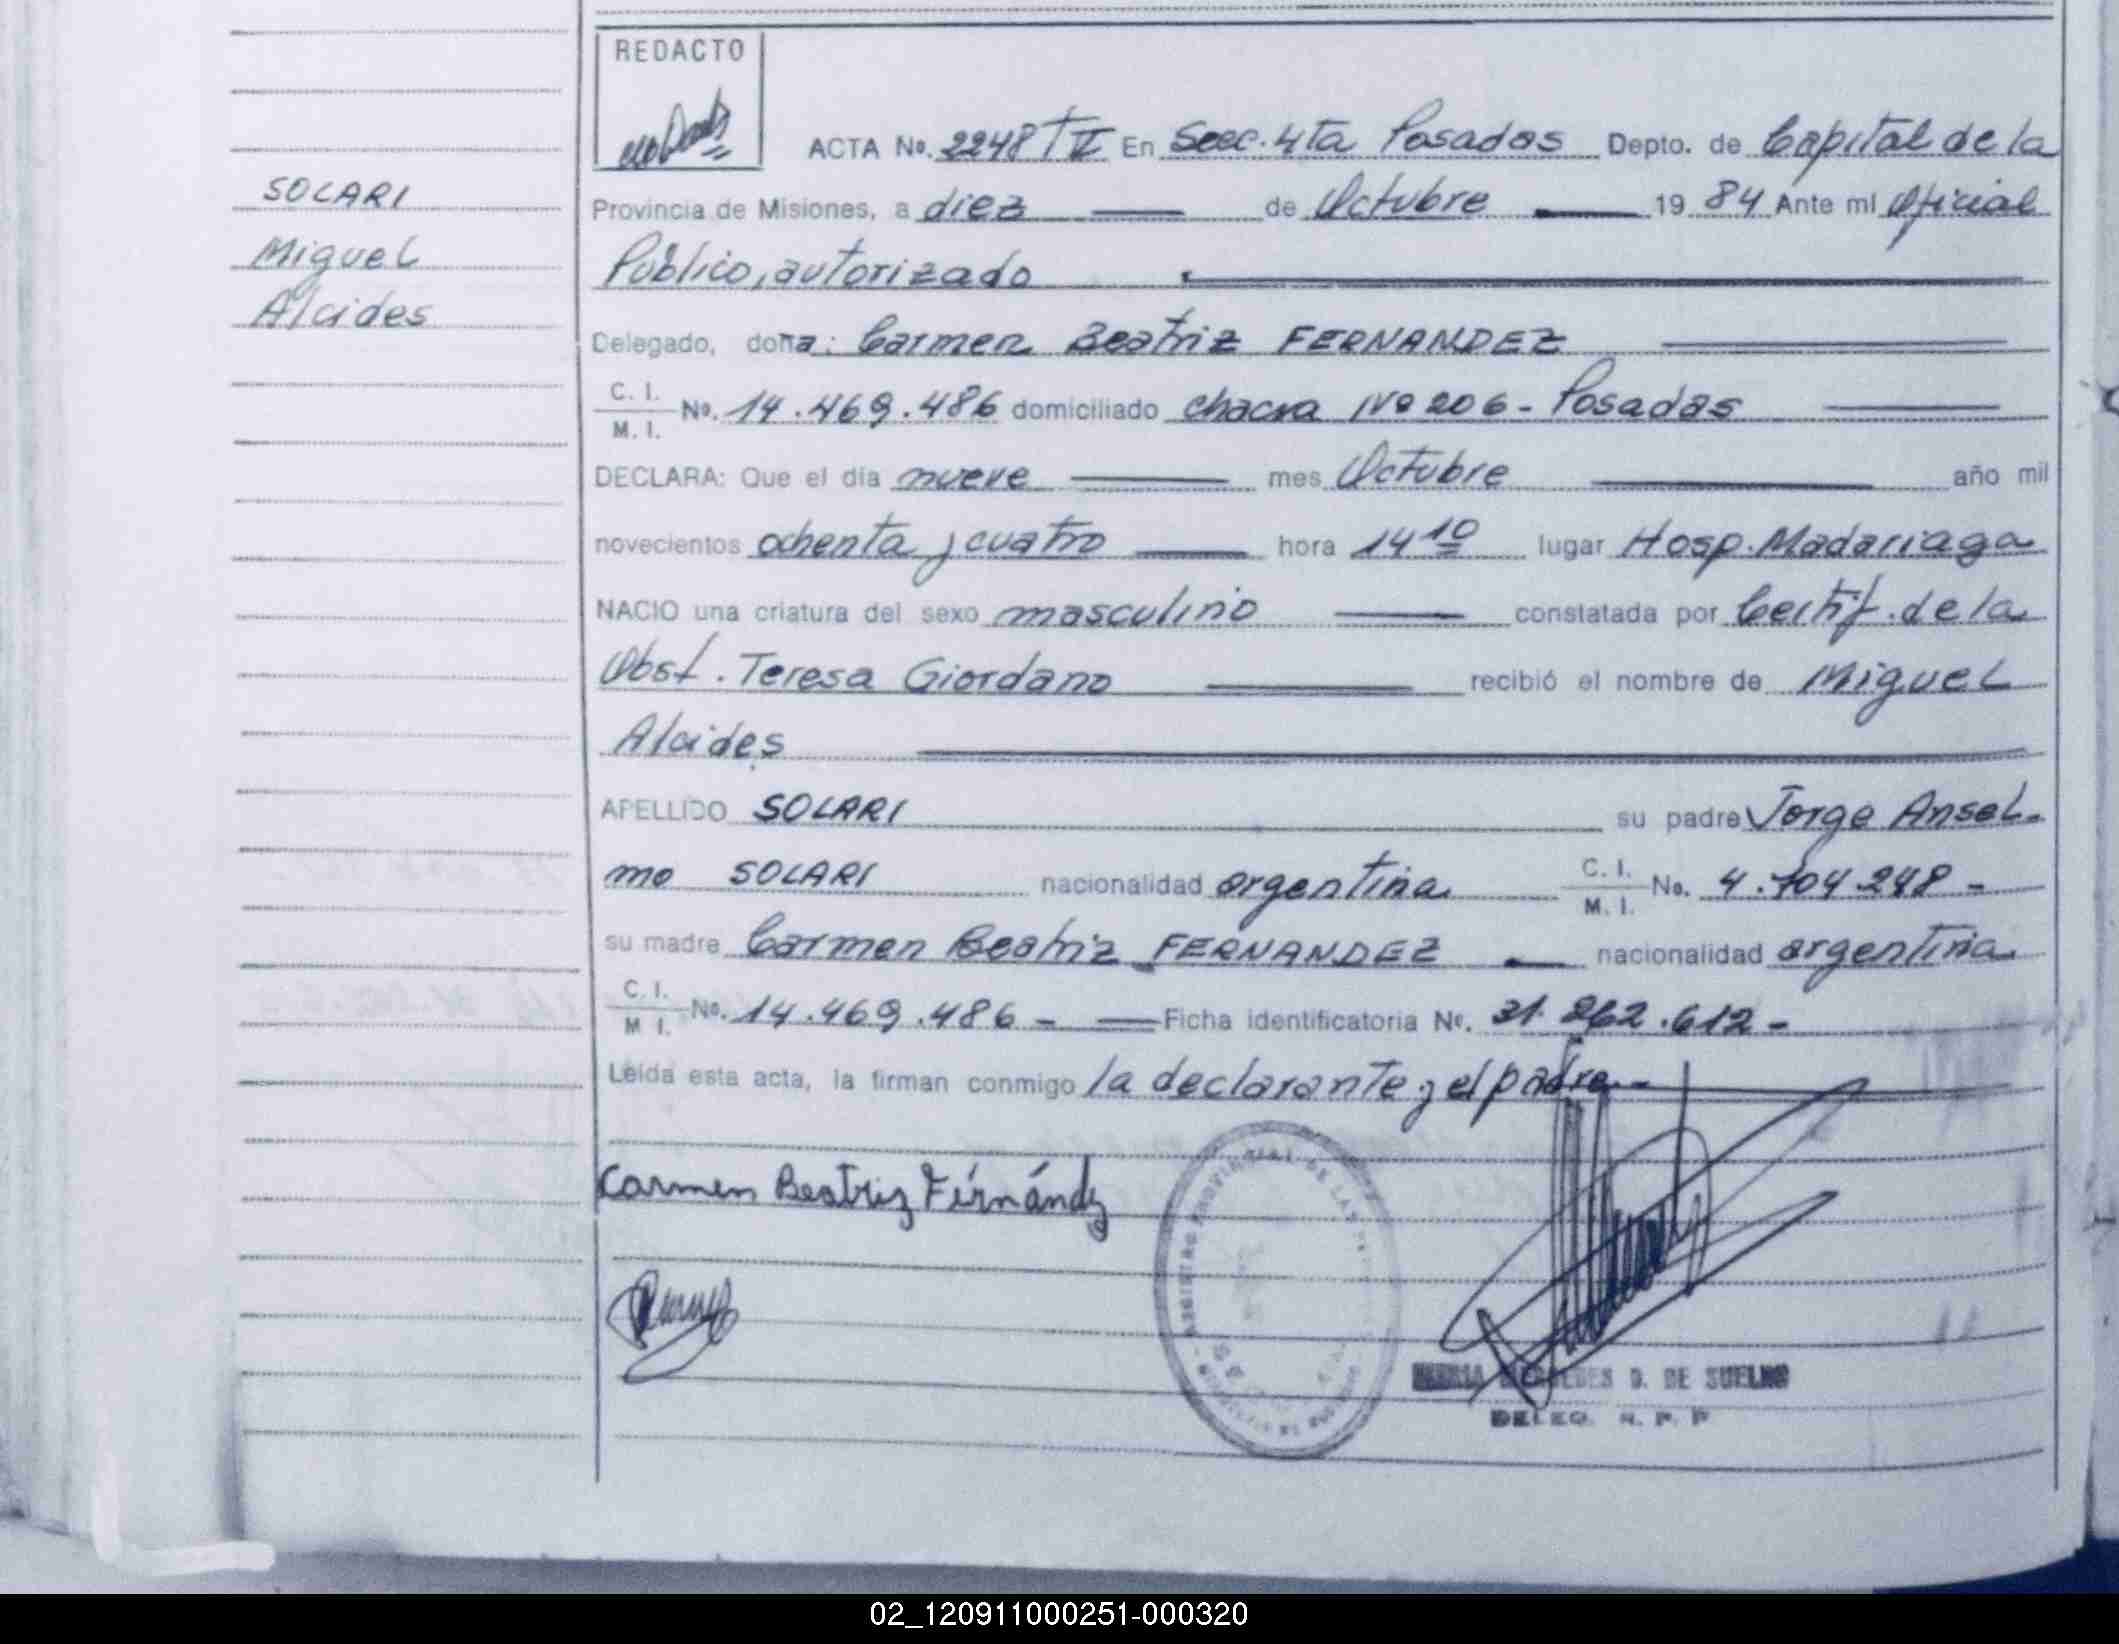 REDACTO
ACTA No. 2248 T V En Secc. 4ta Posadas Depto. de Capital de la
SOLARI
Provincia de Misiones, a diez de Octubre 19 84 Ante mí Oficial
Miguel
Público, autorizado
Alcides
Delegado, doña: Carmen Beatriz FERNANDEZ
C. I.
M. I. No. 14.469.486 domiciliado chacra Nº 206 - Posadas
DECLARA: Que el día nueve mes Octubre año mil
novecientos ochenta y cuatro hora 14 10 lugar Hosp. Madariaga
NACIO una criatura del sexo masculino constatada por Certif. de la
Obst. Teresa Giordano recibió el nombre de Miguel
Alcides
APELLIDO SOLARI su padre Jorge Ansel-
mo SOLARI nacionalidad argentina C. I. M. I. No. 4.704.248 -
su madre Carmen Beatriz FERNANDEZ nacionalidad argentina
C. I. M. I. No. 14.469.486 - Ficha identificatoria No. 31.262.612 -
Leída esta acta, la firman conmigo la declarante y el padre.-
Carmen Beatriz Férnández
REGISTRO PROVINCIAL DE LAS
MERCEDES D. DE
DELEG. R. P. P
02_120911000251-000320